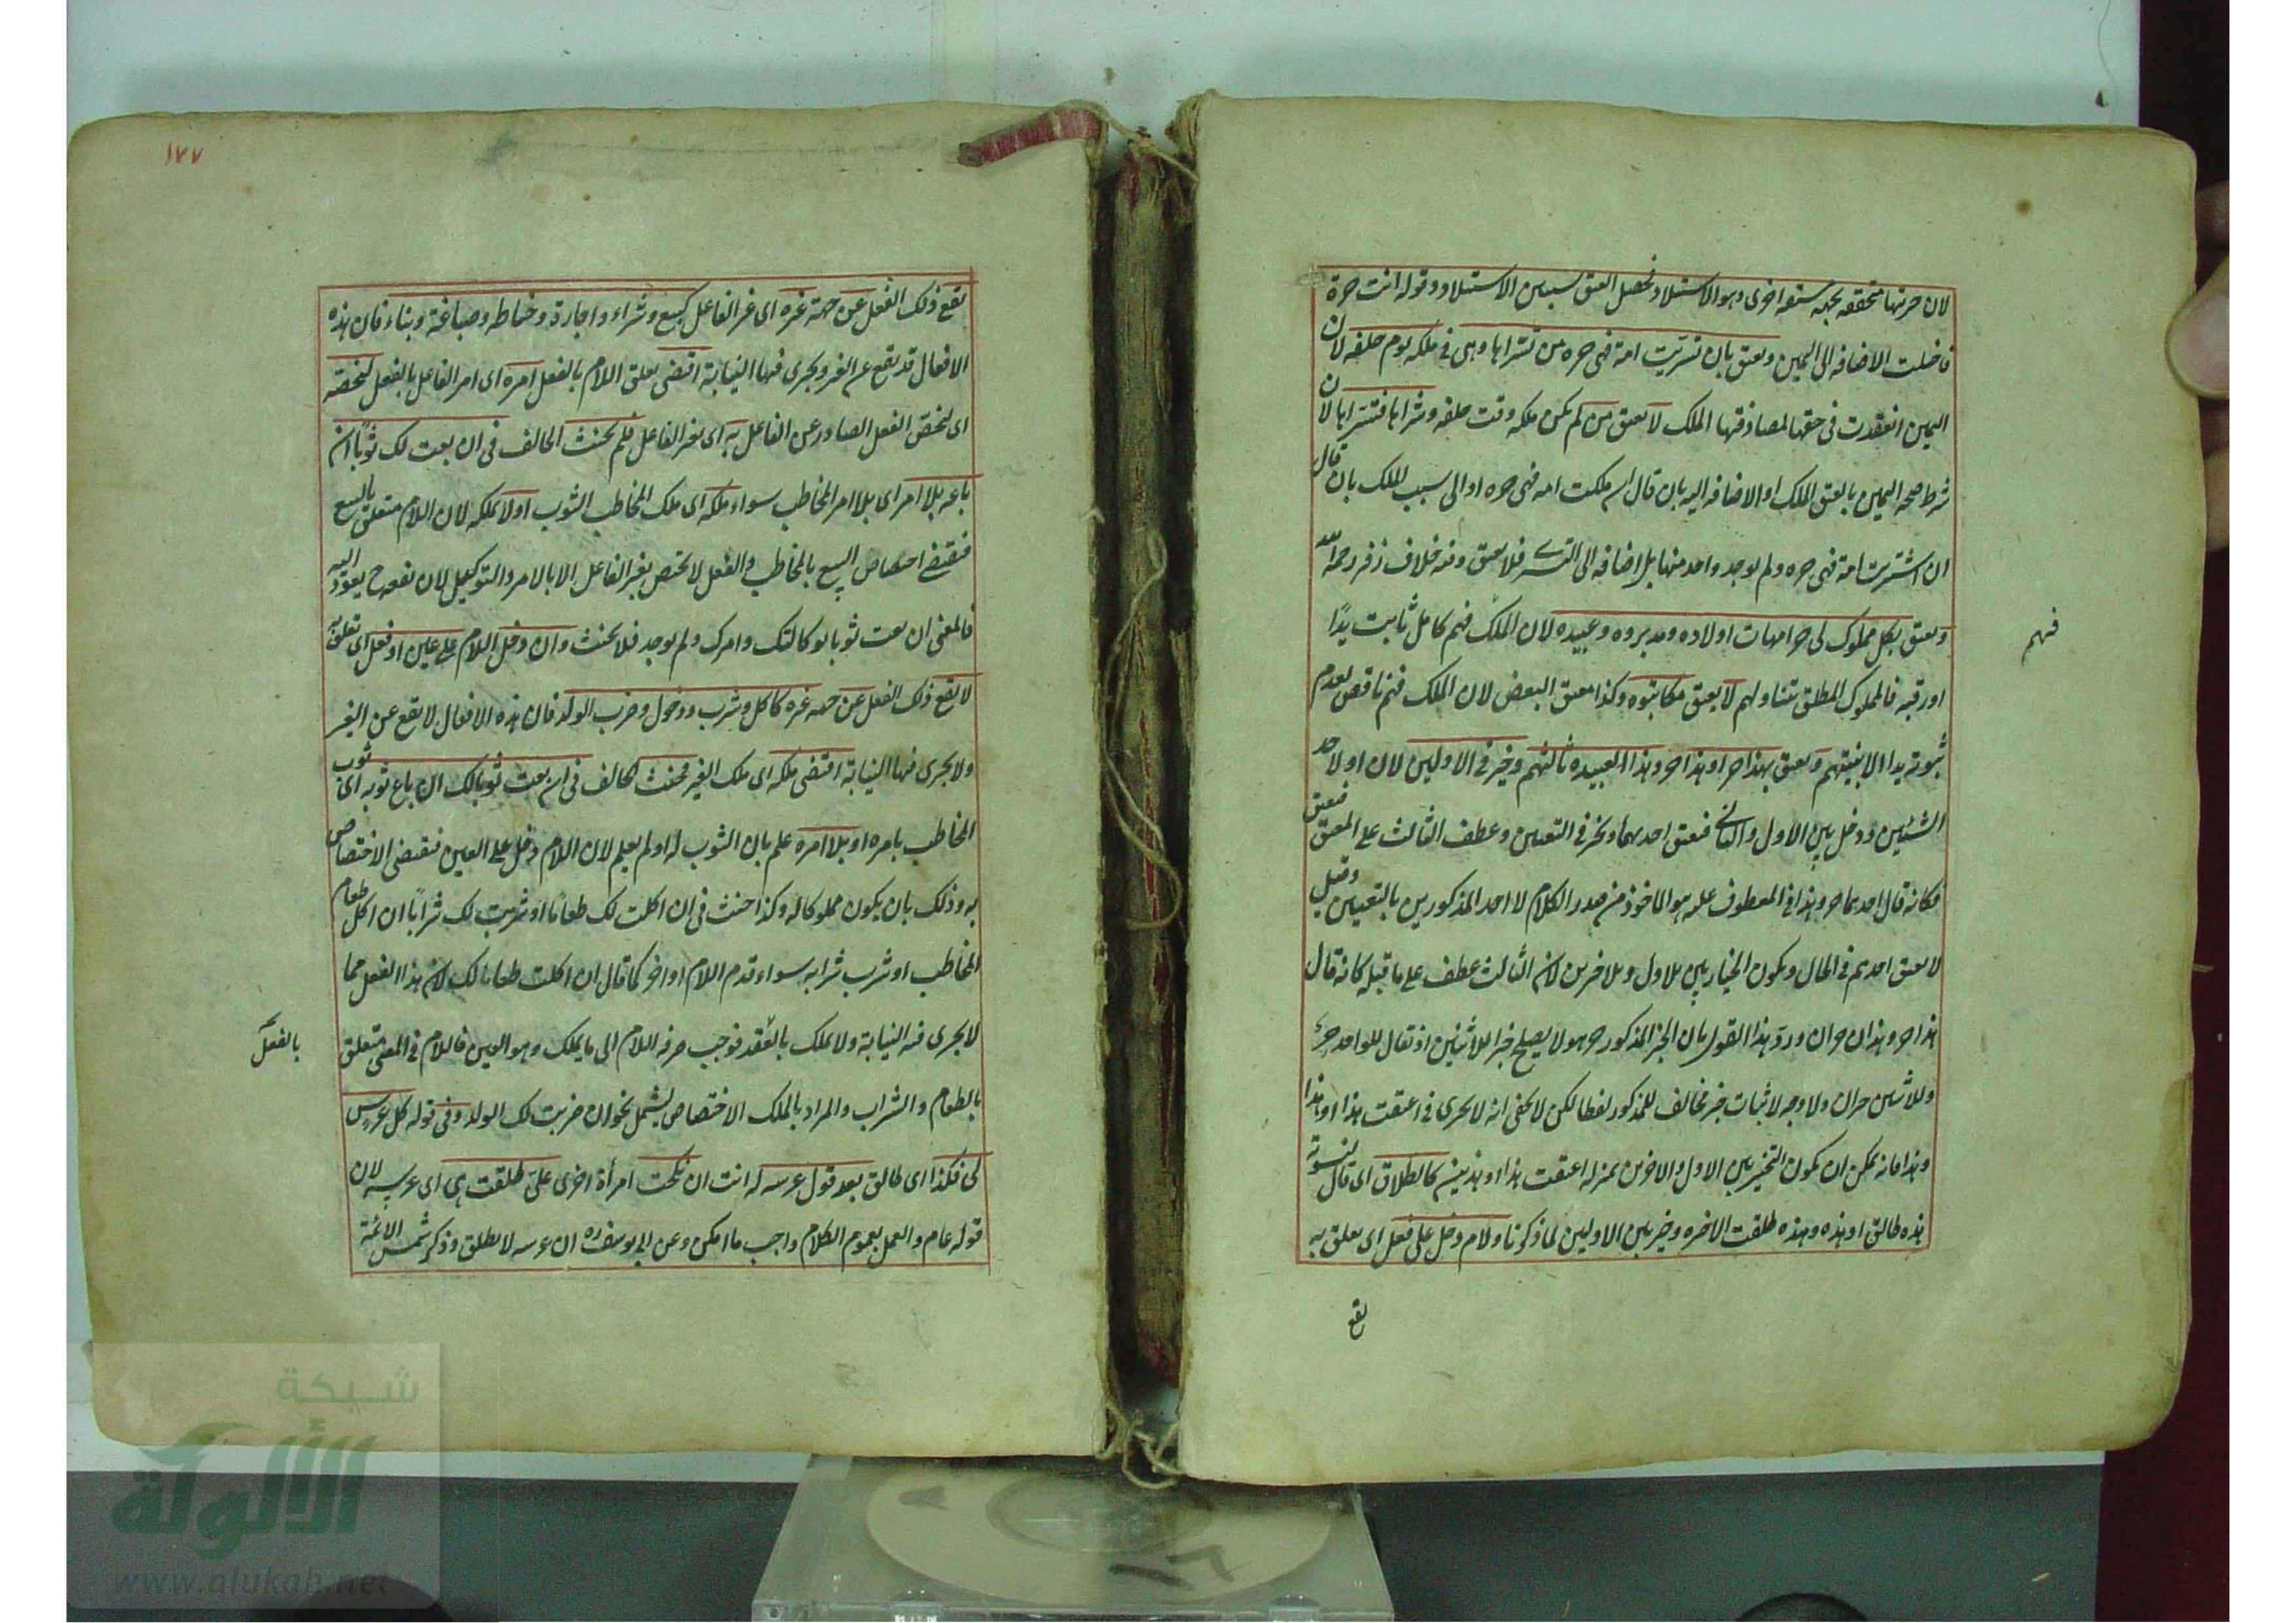 لان حريتها متحققة بجهة ستقع اخرى وهو الاستيلاد فحصل العتق بسببين الاستيلاد وقوله انت حرة
فاختلت الاضافة الى اليمين ويعتق بان تسريت امة فهى حرة من تسراها وهى فى ملكه يوم حلفه لان
اليمين انعقدت فى حقها لمصادفتها الملك لا يعتق من لم يكن ملكه وقت حلفه وشراها فتسراها لان
شرط صحة اليمين بالعتق الملك او الاضافة اليه بان قال ان ملكت امة فهى حرة او الى سبب الملك بان قال
ان اشتريت امة فهى حرة ولم يوجد واحد منها بل اضافة الى التسرى فلا يعتق وفيه خلاف زفر رحمه الله
ويعتق بكل مملوك لى حر امهات اولاده ومدبروه وعبيده لان الملك فيهم كامل ثابت يدًا
فيهم
او رقبة فالمملوك المطلق يتناولهم لا يعتق مكاتبوه وكذا معتق البعض لان الملك فيهم ناقص لعدم
ثبوته يدا الا بنيتهم ويعتق بهذا حر او هذا حر وهذا لعبيده ثالثهم وخير فى الاولين لان او لاحد
الشيئين ودخل بين الاول والثانى فيعتق احدهما ويخير فى التعيين وعطف الثالث على المعتق فيعتق
فكانه قال احدهما حر وهذا فى المعطوف عليه هو الماخوذ من صدر الكلام لا احد المذكورين بالتعيين وقيل
لا يعتق احدهم فى الحال ويكون الخيار بين الاول والاخرين لان الثالث عطف على ما قبله كانه قال
هذا حر وهذان حران ورد هذا القول بان الخبر المذكور حر وهو لا يصلح خبرا للاثنين اذ يقال للواحد حر
وللاثنين حران ولا وجه لاثبات خبر مخالف للمذكور لفظا لكن لا يخفى انه لا يجرى فى اعتقت هذا او هذا
وهذا فانه يمكن ان يكون التخيير بين الاول والاخرين بمنزلة اعتقت هذا او هذين كالطلاق اى قال لنسوته
هذه طالق او هذه وهذه طلقت الاخرة وخير بين الاوليين لما ذكرنا ولام دخل على فعل اى يعلق به
يقع
١٧٧
يقع ذلك الفعل عن جهة غيره اى غير الفاعل كبيع وشراء واجارة وخياطة وصباغة وبناء فان هذه
الافعال قد يقع عن الغير ويجرى فيها النيابة اقتضى تعلق اللام بالفعل امره اى امر الفاعل بالفعل ليخصه
اى ليخص الفعل الصادر عن الفاعل به اى بغير الفاعل فلم يحنث الحالف فى ان بعت لك ثوبًا ان
باعه بلا امر اى بلا امر المخاطب سواء ملكه اى ملك المخاطب الثوب او لا يملكه لان اللام متعلق بالبيع
فيقتضى اختصاص البيع بالمخاطب والفعل لا يختص بغير الفاعل الا بالامر والتوكيل لان نفعه ح يعود اليه
فالمعنى ان بعت ثوبا بوكالتك وامرك ولم يوجد فلا يحنث وان دخل اللام على عين او فعل اى تعلق به
لا يقع ذلك الفعل عن جهة غيره كاكل وشرب ودخول وضرب الولد فان هذه الافعال لا يقع عن الغير
ولا يجرى فيها النيابة اقتضى ملكه اى ملك الغير فحنث الحالف فى ان بعت ثوبا لك ان باع ثوبه اى ثوب
المخاطب بامره او بلا امره علم بان الثوب له او لم يعلم لان اللام دخل على العين فيقتضى الاختصاص
به وذلك بان يكون مملوكا له وكذا حنث فى ان اكلت لك طعامًا او شربت لك شرابًا ان اكل طعام
المخاطب او شرب شرابه سواء قدم اللام او اخر كما قال ان اكلت طعاما لك لان هذا الفعل مما
لا يجرى فيه النيابة ولا يملك بالعقد فوجب صرف اللام الى ما يملك وهو العين فاللام فى المعنى متعلق
بالفعل
بالطعام والشراب والمراد بالملك الاختصاص ليشمل نحو ان ضربت لك الولد وفى قوله كل عرس
لى فكذا اى طالق بعد قول عرسه له انت ان نكحت امرأة اخرى على طلقت هى اى عرسه لان
قوله عام والعمل بعموم الكلام واجب ما امكن وعن ابى يوسف ره ان عرسه لا يطلق وذكر شمس الائمة
شبكة
الألوكة
www.alukah.net